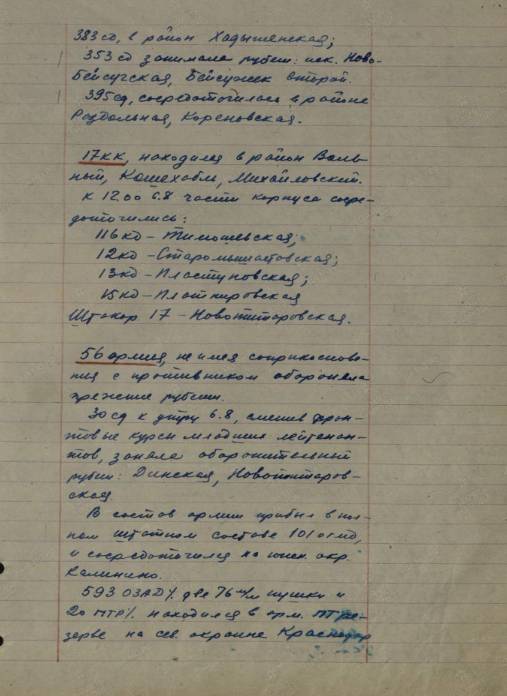 383сд, в район Хадыженская;
353 сд занимала рубеж: иск. Ново-
Бейсугская, Бейсужек второй.
395сд, сосредоточилась в районе
Раздольная, Кореновская.
17КК, находился в район Воль-
ный, Кошехабль, Михайловский.
К 12.00 6.8 части корпуса сосре-
доточились:
116кд - Тимошевская;
12кд - Старомышастовская;
13кд - Пластуновская;
15кд - Платнировская
Штакор 17 - Новотитаровская.
56 армия, не имея соприкоснове-
ния с противником обороняла
прежние рубежи.
30 сд к утру 6.8, сменив фрон-
товые курсы младших лейтенан-
тов, заняла оборонительный
рубеж: Динская, Новотитаров-
ская
В состав армии прибыл в пол-
ном штатном составе 101 огмд,
и сосредоточился на юж. окр.
Калинино.
593 ОЗАД /. две 76 м/м пушки и
20 ПТР/. находился в арм. ПТ ре-
зерве на сев. окраине Краснодар